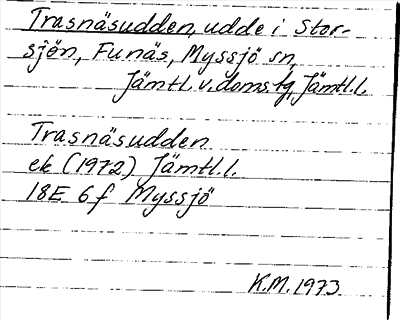 Trasnäsudden, udde i Stor-
sjön, Funäs, Myssjö sn,
Jämtl. v. doms. tg, Jämtl. l.
Trasnäsudden
ek (1972) Jämtl. l.
18E 6f Myssjö
K.M. 1973